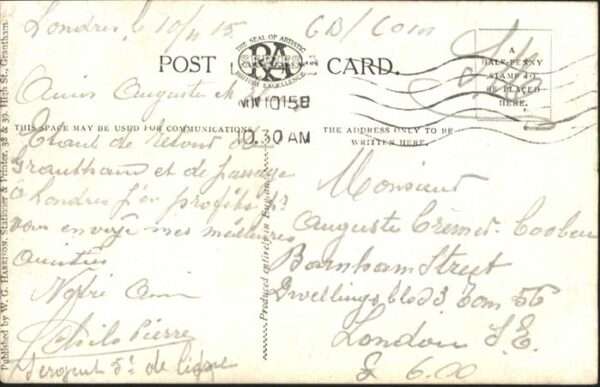 Londres, le 10/11 15
GB/Corn
THE SEAL OF ARTISTIC
BRITISH EXCELLENCE
RA
POST CARD.
A
HALF-PENNY
STAMP TO
BE PLACED
HERE.
Amis Auguste
NV 10 15 B
10.30 AM
THIS SPACE MAY BE USED FOR COMMUNICATIONS
THE ADDRESS ONLY TO BE
WRITTEN HERE.
Étant de retour de
Grantham et de passage
à Londres j'en profite pr
vous envoyé mes meilleures
amitiés
Notre Ami
Pierre
Sergent 5e de ligne
Monsieur
Auguste Crémer
Barnham Street
Dwellings 3 56
London S.E.
£ 6.00
Produced entirely in England
Published by W. G. Harrison, Stationer & Printer, 38 & 39, High St., Grantham.